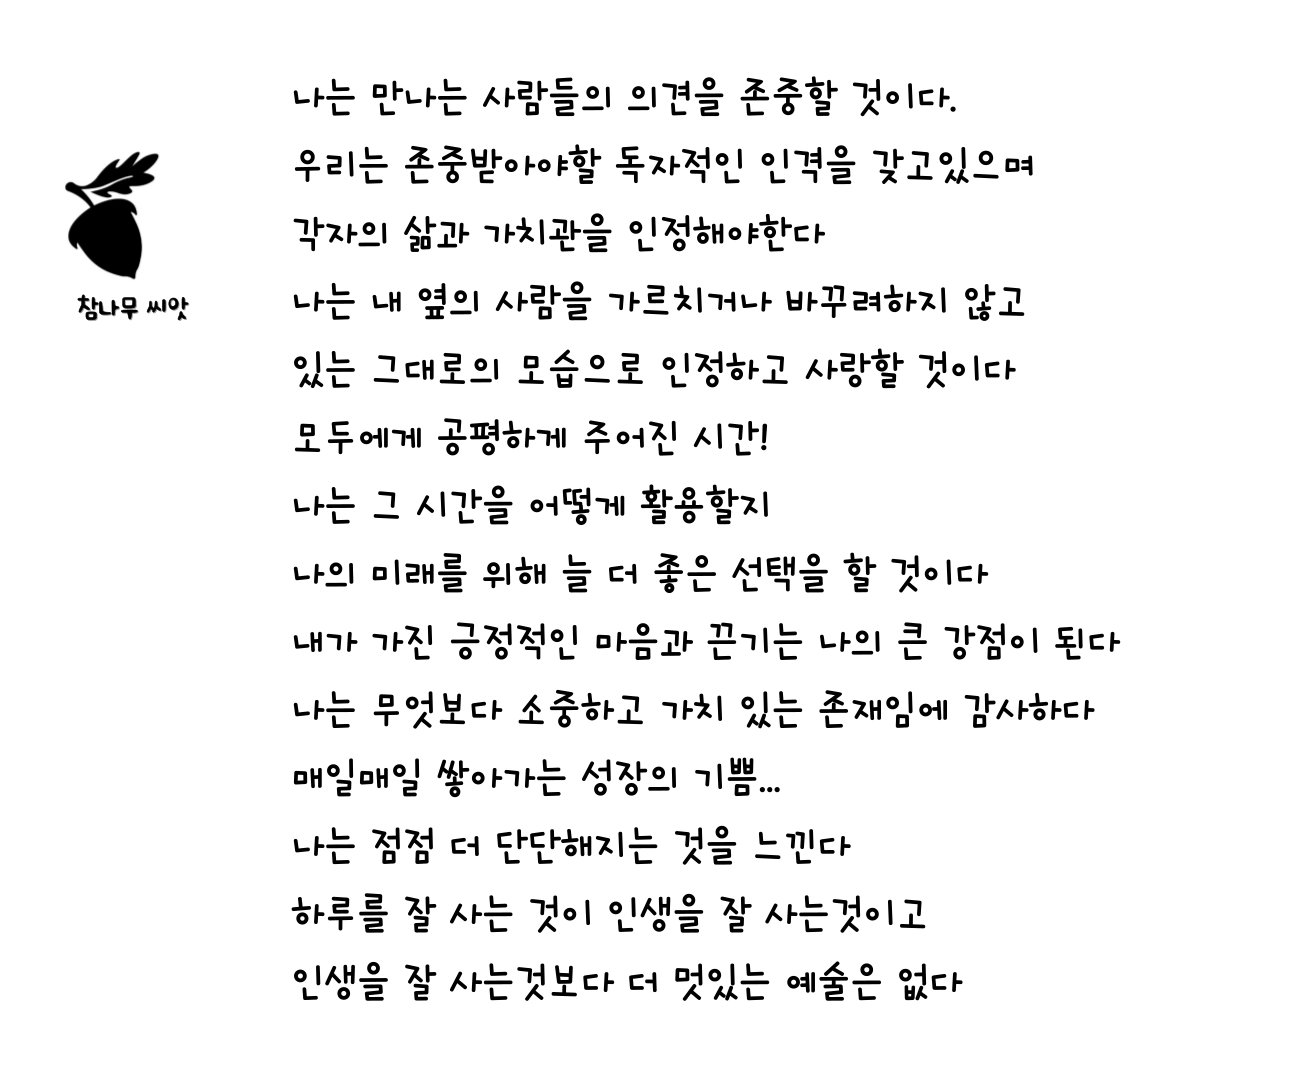 나는 만나는 사람들의 의견을 존중할 것이다.
우리는 존중받아야할 독자적인 인격을 갖고있으며
각자의 삶과 가치관을 인정해야한다
나는 내 옆의 사람을 가르치거나 바꾸려하지 않고
있는 그대로의 모습으로 인정하고 사랑할 것이다
모두에게 공평하게 주어진 시간!
나는 그 시간을 어떻게 활용할지
나의 미래를 위해 늘 더 좋은 선택을 할 것이다
내가 가진 긍정적인 마음과 끈기는 나의 큰 강점이 된다
나는 무엇보다 소중하고 가치 있는 존재임에 감사하다
매일매일 쌓아가는 성장의 기쁨...
나는 점점 더 단단해지는 것을 느낀다
하루를 잘 사는 것이 인생을 잘 사는것이고
인생을 잘 사는것보다 더 멋있는 예술은 없다
참나무 씨앗